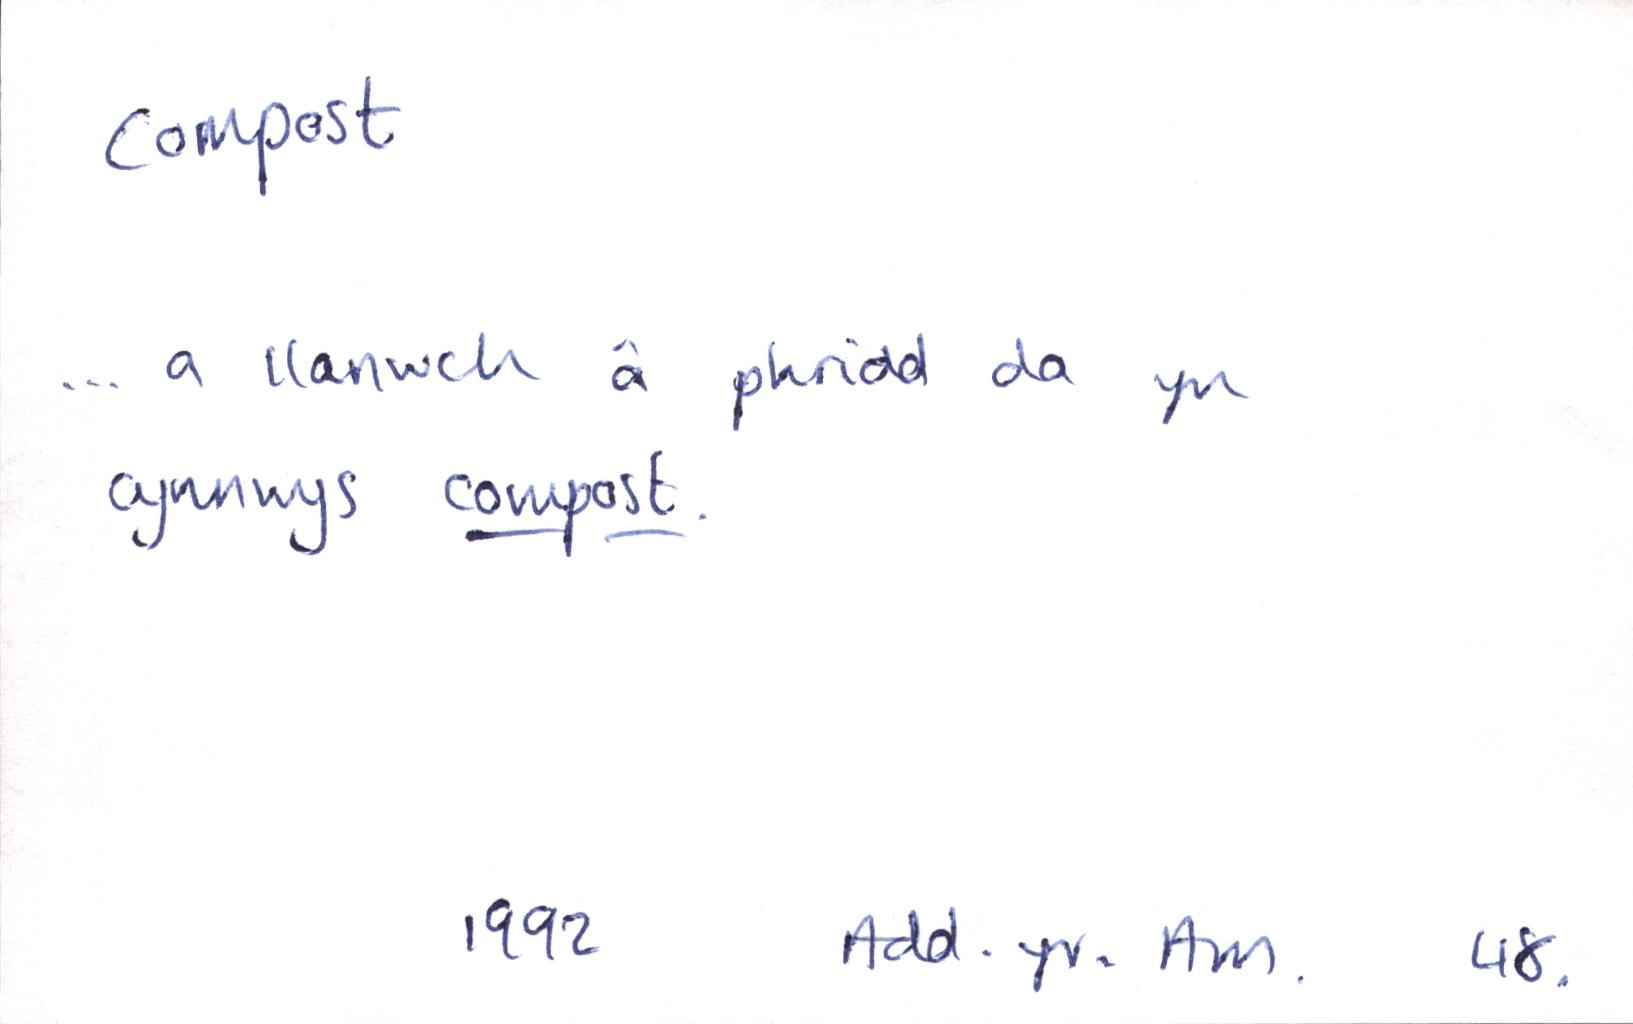 Compost
... a llanwch â phridd da yn
cynnwys compost.
1992 Add. yr. Am. 48.